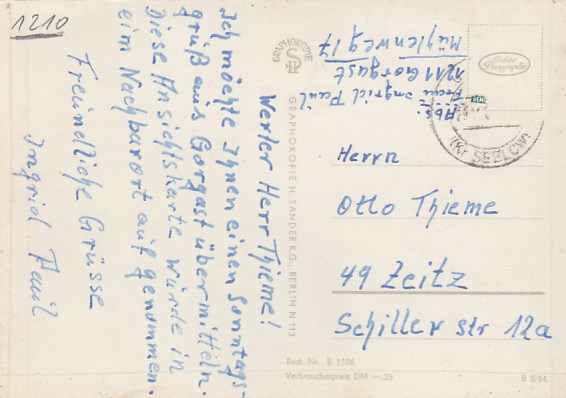 1210
Werter Herr Thieme!
Ich möchte Ihnen einen Sonntags-
gruß aus Gorgast übermitteln.
Diese Ansichtskarte würde in
eim Nachbarort aufgenommen.
Freundliche Grüsse
Ingrid Paul
GRAPHOKOPIE
GRAPHOKOPIE H. SANDER KG., BERLIN N 113
Abs:
Frau Ingrid Paul
1211 Gorgast
Mühlenweg 17
Echte
Photographie
(Kr SEELOW)
Herrn
Otto Thieme
49 Zeitz
Schiller str 12a
Best.-Nr. B 1706
Verbraucherpreis DM —,25
B 8/64